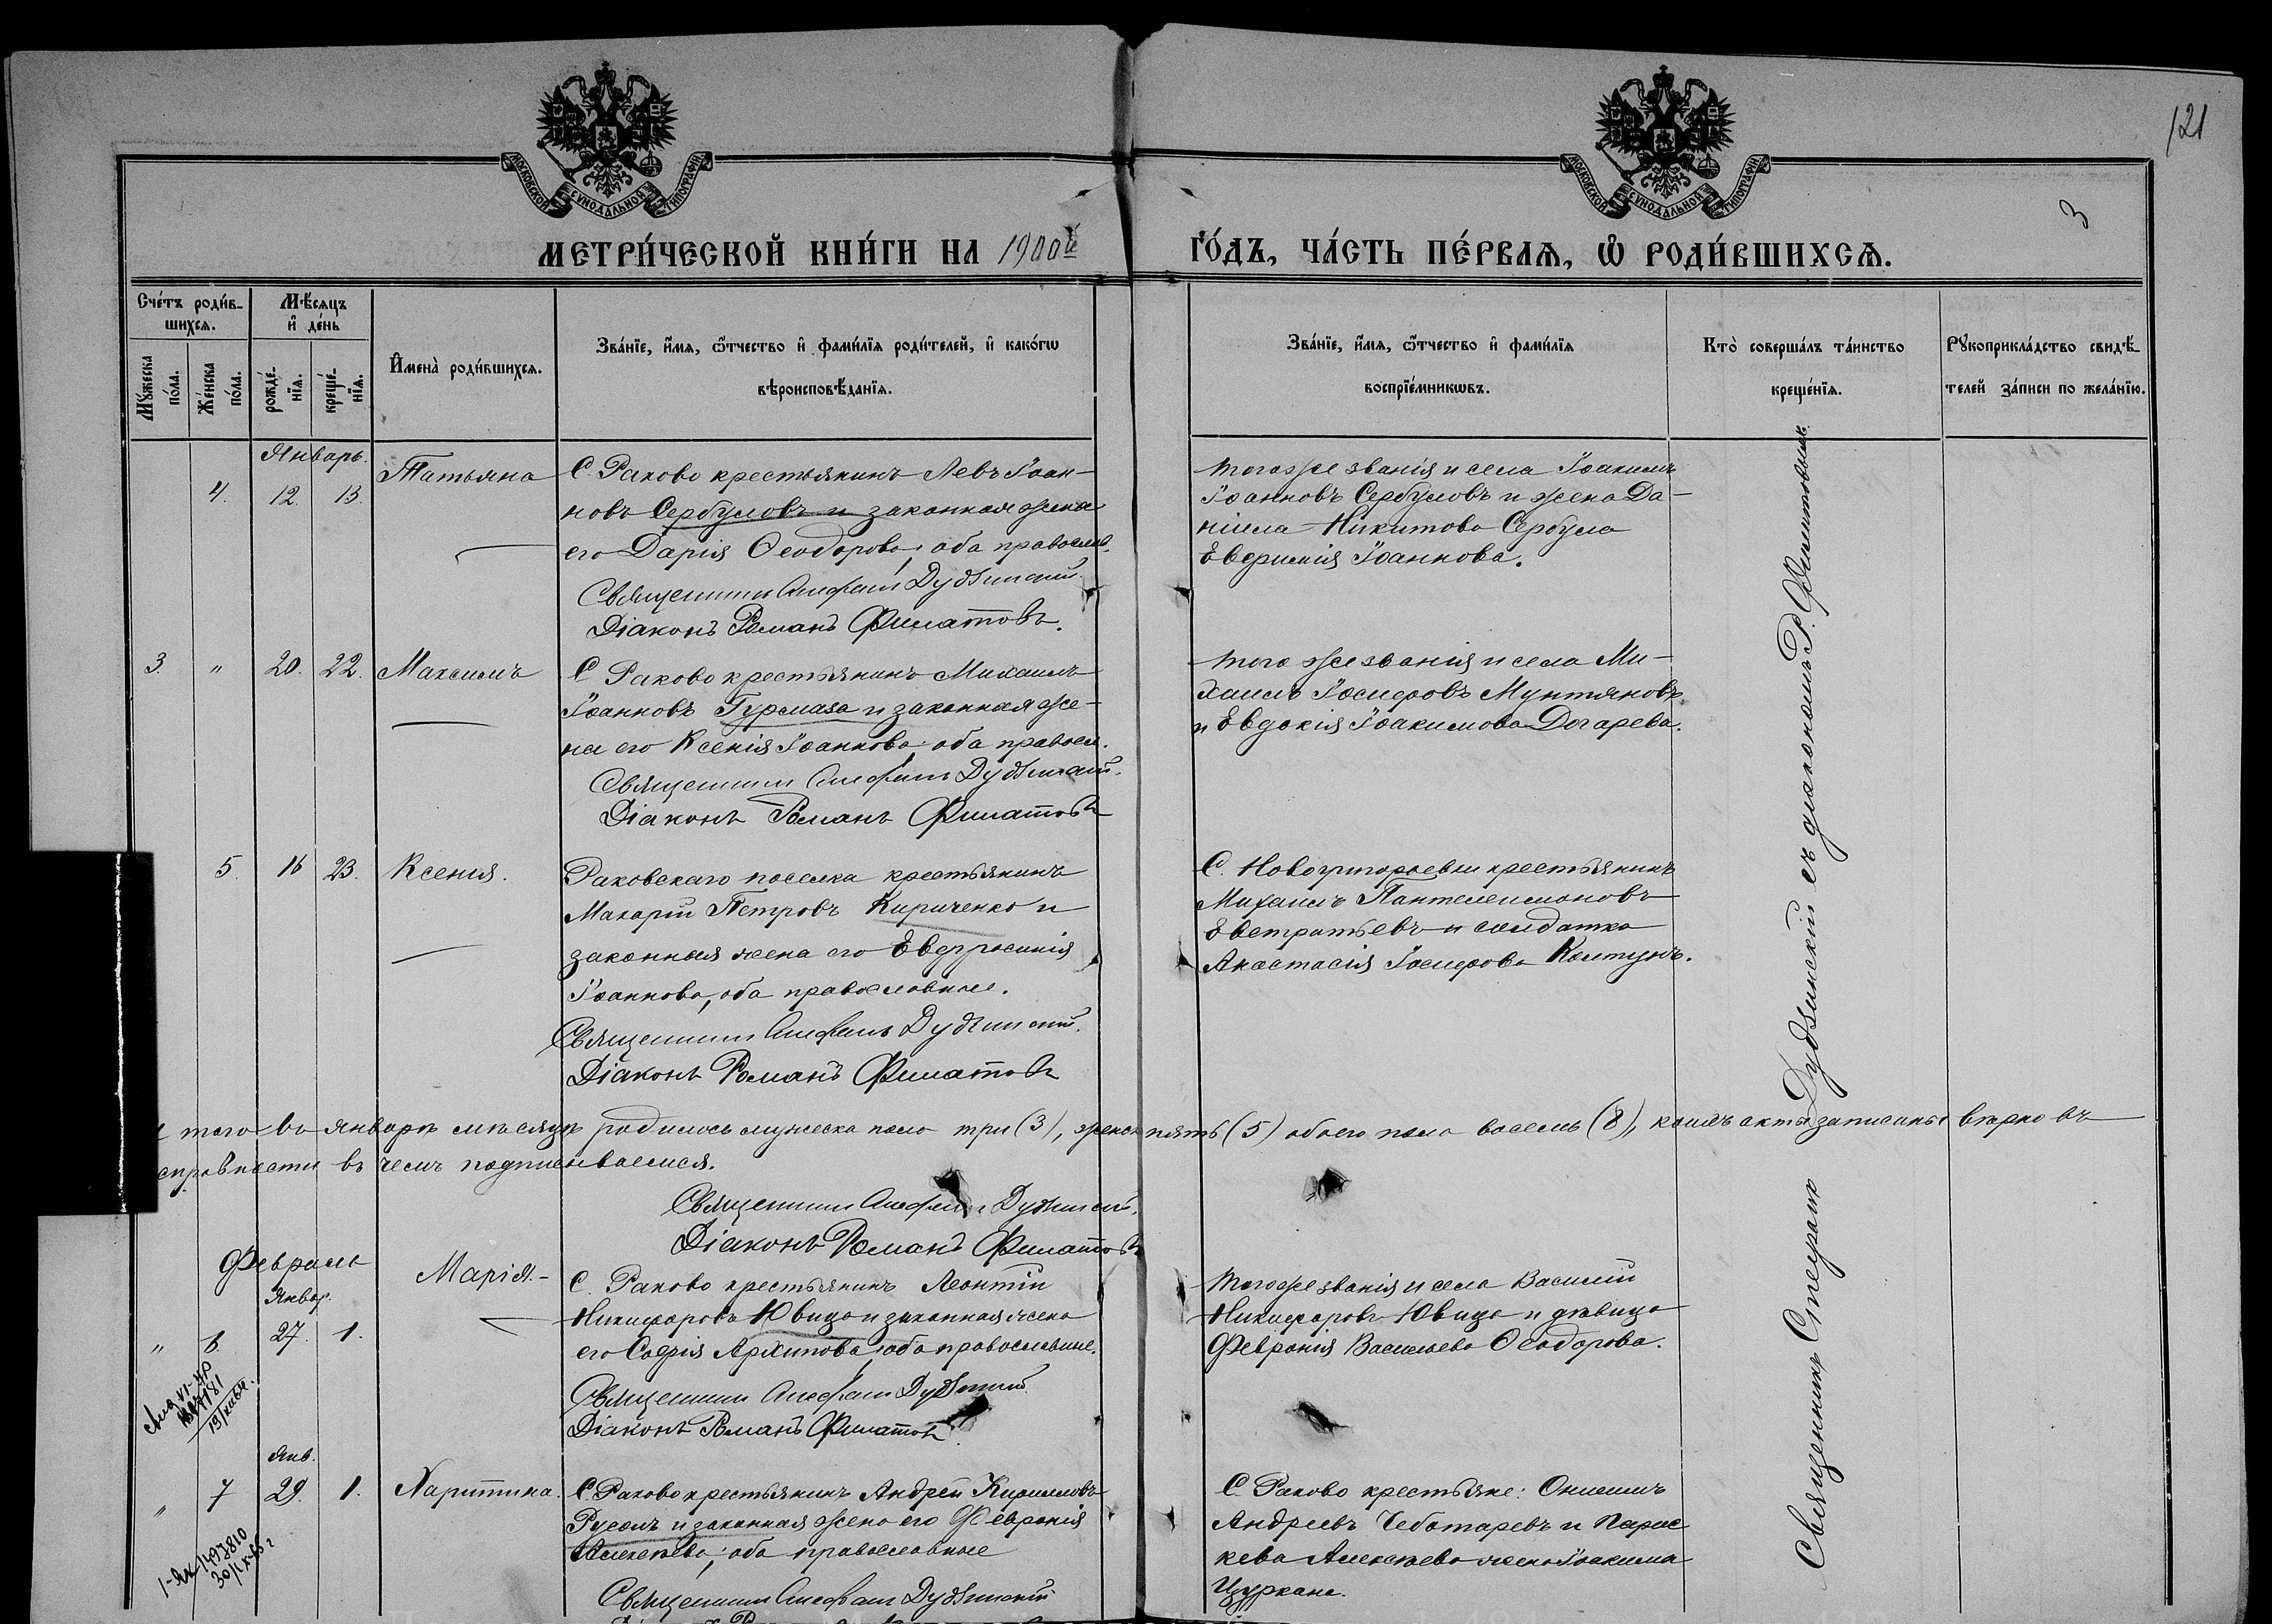 121
3
МОСКОВСКОЙ СУНОДАЛЬНОЙ ТИПОГРАФІИ
МОСКОВСКОЙ СУНОДАЛЬНОЙ ТИПОГРАФІИ
МЕТРИ́ЧЕСКОЙ КНИ́ГИ НА 1900й
ГО́ДЪ, ЧА́СТЬ ПЕ́РВАѦ, Ѽ РОДИ́ВШИХСѦ.
Счéтъ роди́в-
шихсѧ.
Мꙋ́жеска
по́ла.
Же́нска
по́ла.
Мѣ́сѧцъ
и҆ де́нь
рожде́-
нїѧ.
креще́-
нїѧ.
И҆мена̀ роди́вшихсѧ.
Зва́нїе, и҆́мѧ, ѻ҆́тчество и҆ фами́лїѧ роди́телей, и҆ како́гѡ
вѣроисповѣ́данїѧ.
Зва́нїе, и҆́мѧ, ѻ҆́тчество и҆ фами́лїѧ
воспрїе́мникѡвъ.
Кто̀ соверша́лъ та́инство
креще́нїѧ.
Рꙋкоприкла́дство свидѣ́-
телей за́писи по жела́нїю.
Январь.
4. 12. 13.
Татьяна
С. Раково крестьянинъ Левъ Іоан-
новъ Сербуловъ и законная жена
его Дарія Ѳеодорова, оба православ.
Священникъ Дудзинскій
Діаконъ Романъ Филатовъ.
тогоже званія и села Іоакимъ
Іоанновъ Сербуловъ и жена Да-
ніила Никитова Сербула
Іоаннова.
3. " 20. 22. Максимъ
С. Раково крестьянинъ Михаилъ
Іоанновъ Гурмаза и законная же-
на его Ксенія Іоаннова оба правосл.
Священникъ Дудзинскій.
Діаконъ Романъ Филатовъ
того же званія и села Ми-
хаилъ Іосифовъ Мунтяновъ
и Евдокія Іоакимова Догарева.
5. 16 23. Ксенія.
Раковскаго поселка крестьянинъ
Макарій Петровъ Кириченко и
законная жена его Евфросинія
Іоаннова, оба православные.
Священникъ Дудзинскій.
Діаконъ Романъ Филатовъ
С. Новогригорьевки крестьянинъ
Михаилъ Пантелеимоновъ
Евстратьевъ и солдатка
Анастасія Іосифова Колтунъ.
того въ январѣ мѣсяцѣ родилось мужеска пола три (3), женска пять (5) обоего пола восемь (8), акты записаны вѣрно въ
справности въ чемъ подписываемся.
Священникъ Дудзинскій.
Діаконъ Романъ Филатовъ
Февраль
Январ.
" 6 27. 1.
Марія.-
С. Раково крестьянинъ Леонтій
Никифоровъ Ювица и законная жена
его Софія Архипова, оба православные.
Священникъ Дудзинскій
Діаконъ Романъ Филатовъ
тогоже званія и села Василій
Никифоровъ Ювица и дѣвица
Февронія Васильева Ѳеодорова.
Янв.
" 7 29. 1. Харитина.
С. Раково крестьянинъ Андрей Кирилловъ
Русолъ и законная жена его Февронія
Алексѣева, оба православные
Священникъ Дудзинскій
С. Раково крестьяне: Онисимъ
Андреевъ Чеботаревъ и Парас-
кева Алексѣева жена Іоакима
Цуркана.
Священникъ Дудзинскій съ діакономъ Р. Филатовымъ.